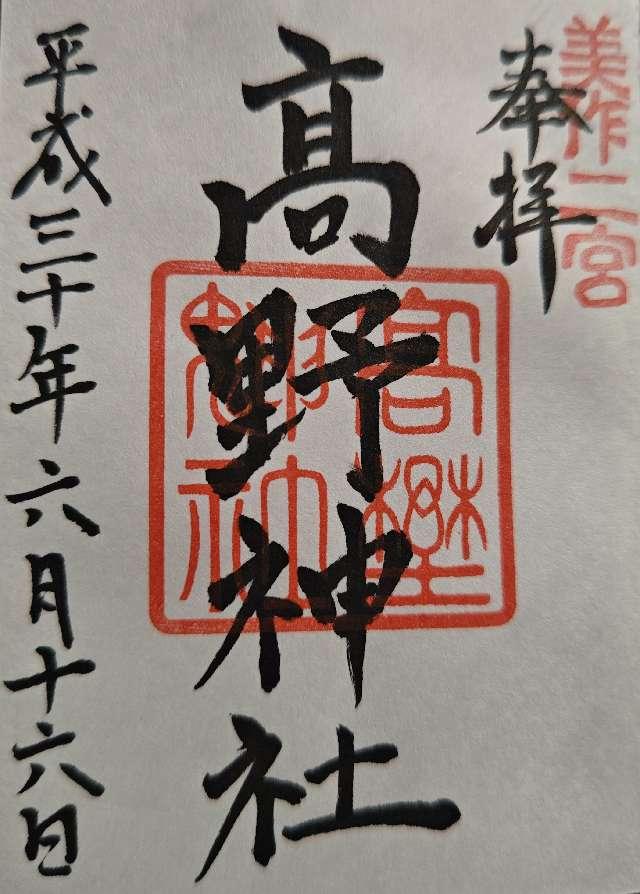 美作二宮
奉拝
高野神社
平成三十年六月十六日